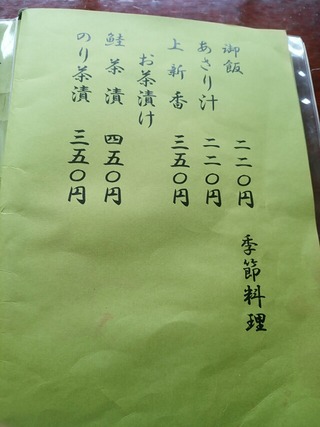 御飯 二二〇円
あさり汁 二二〇円
上新香 三五〇円
お茶漬け
鮭茶漬 四五〇円
のり茶漬 三五〇円
季節料理